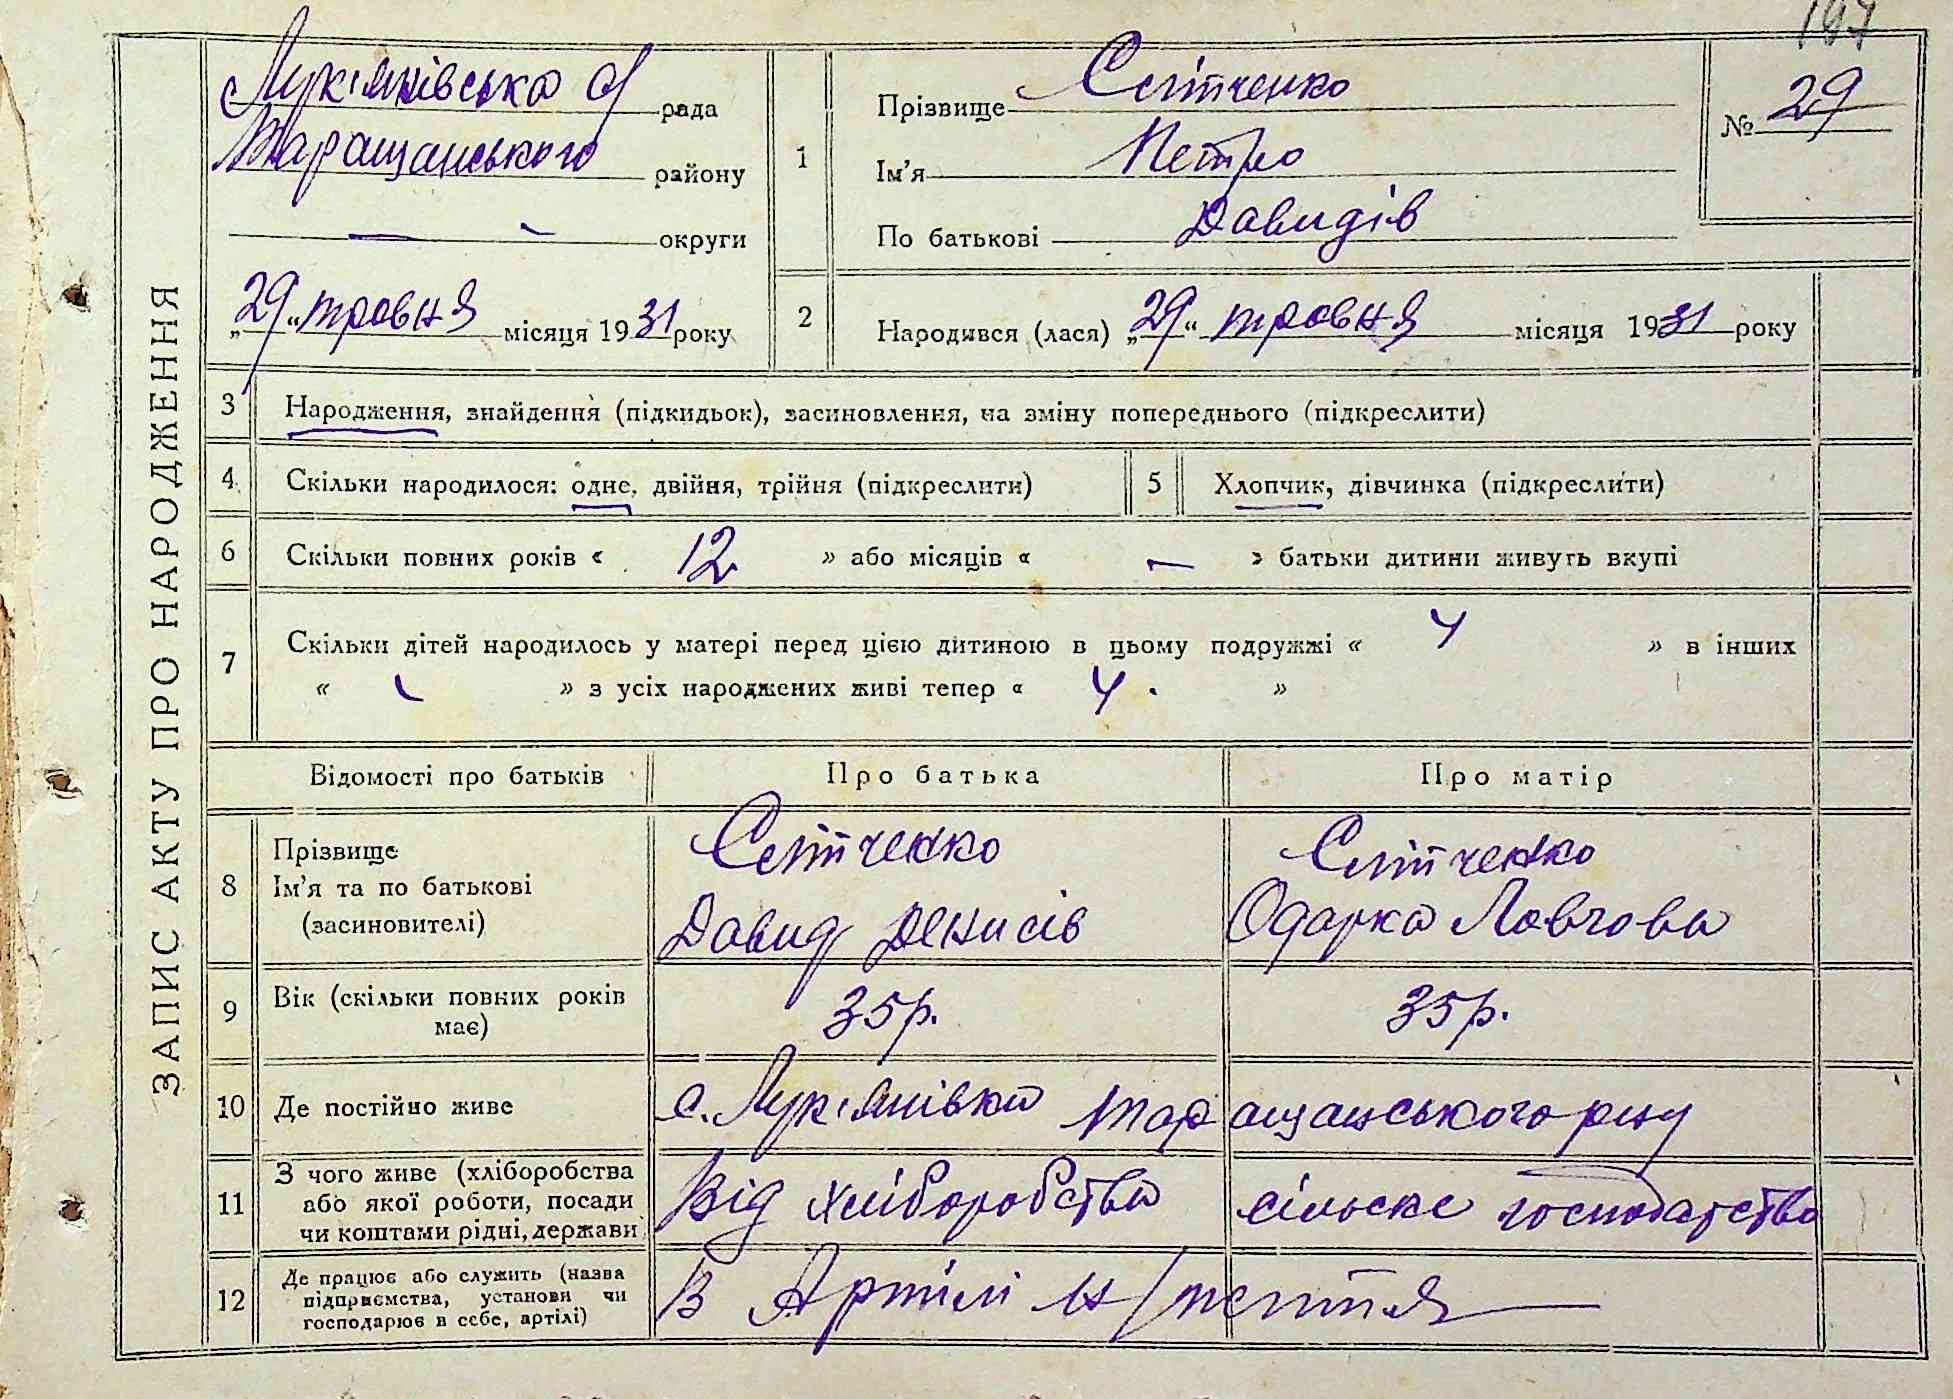 197
Лукіянівська с/ рада
Таращанського району
— - округи
„29“ травня місяця 1931 року
ЗАПИС АКТУ ПРО НАРОДЖЕННЯ
1
Прізвище
Ім'я Петро
По батькові Давидів
№ 29
2 Народився (лася) „29“ травня місяця 1931 року
3 Народження, знайдення (підкидьок), засиновлення, на зміну попереднього (підкреслити)
4 Скільки народилося: одне, двійня, трійня (підкреслити) 5 Хлопчик, дівчинка (підкреслити)
6 Скільки повних років « 12 » або місяців « — » батьки дитини живуть вкупі
7 Скільки дітей народилось у матері перед цією дитиною в цьому подружжі « 4 » в інших
« - » з усіх народжених живі тепер « 4. »
Відомості про батьків Про батька Про матір
8 Прізвище
Ім'я та по батькові
(засиновителі)
Давид Денисів Одарка
9 Вік (скільки повних років має) 35р. 35р.
10 Де постійно живе с. Лукіянівка Таращанського р-ну
11 З чого живе (хліборобства
або якої роботи, посади
чи коштами рідні, держави
Від хліборобства сільске господарство
12 Де працює або служить (назва
підприємства, установи чи
господарює в себе, артілі)
В Артілі н/життя